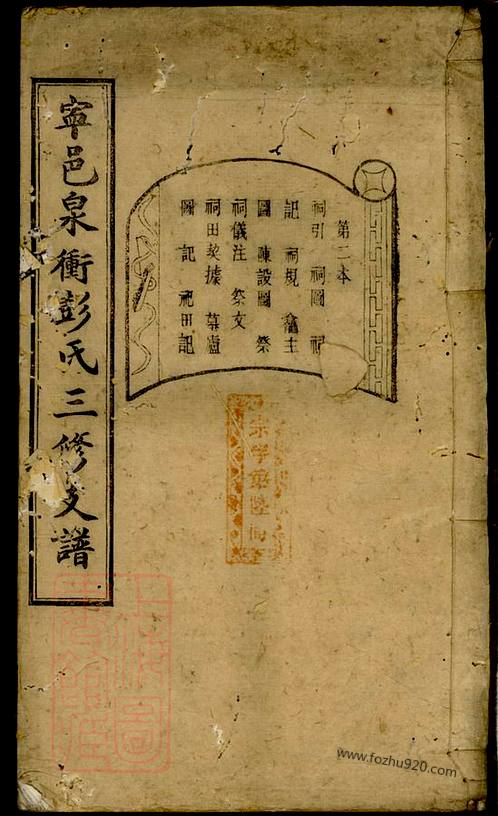 寧邑泉衝彭氏三修支譜
第二本
祠引 祠圖 祠
記 祠規 龕主
圖 陳設圖 祭
祠儀注 祭文
祠田契據 墓廬
圖 記 祀田記
www.fozhu920.com